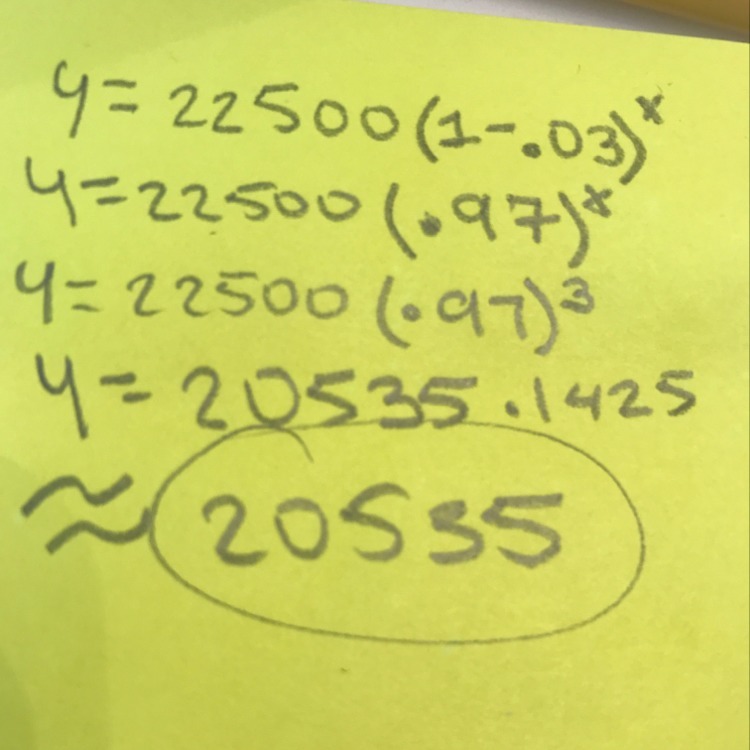 y=22500(1-.03)^x
y=22500(.97)^x
y=22500(.97)^3
y=20535.1425
≈20535